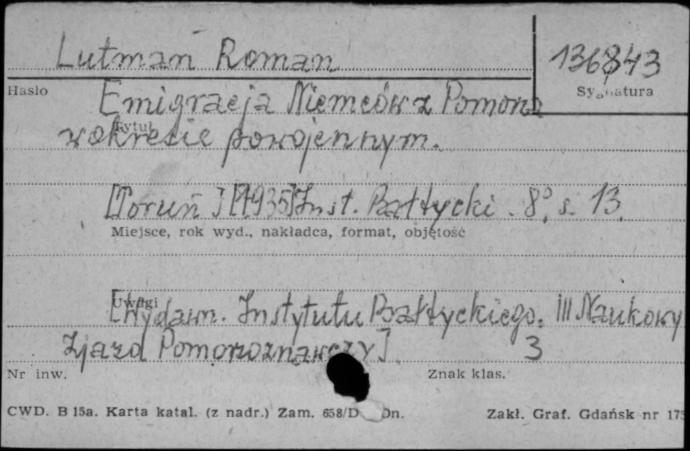 Lutman Roman
136843
Hasło
Sygnatura
Emigracja Niemców z Pomorza
Tytuł
w okresie powojennym.
[Toruń] [1935] Inst. Bałtycki. 8°, s. 13.
Miejsce, rok wyd., nakładca, format, objętość
Uwagi
[Wydawn. Instytutu Bałtyckiego. III Naukowy
Zjazd Pomorzoznawczy]. 3
Nr inw.
Znak klas.
CWD. B 15a. Karta katal. (z nadr.) Zam. 658/D Dn.
Zakł. Graf. Gdańsk nr 173